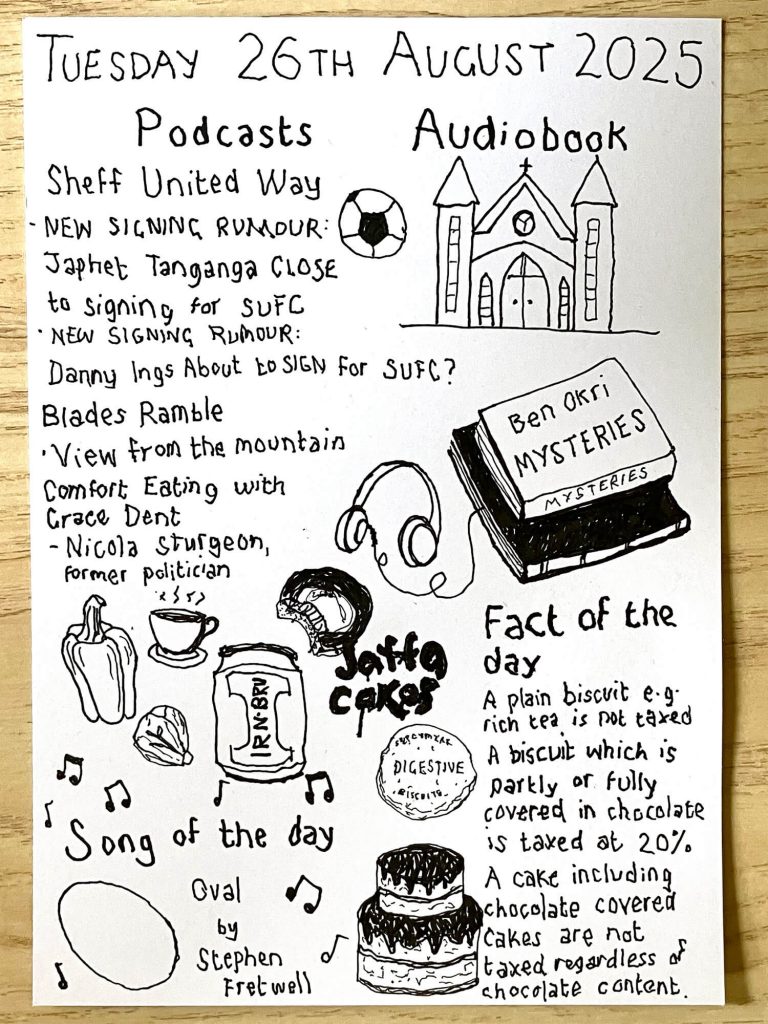 TUESDAY 26TH AUGUST 2025
Podcasts
Sheff United Way
- NEW SIGNING RUMOUR:
Japhet Tanganga CLOSE
to signing for SUFC
· NEW SIGNING RUMOUR:
Danny Ings About to SIGN For SUFC?
Blades Ramble
· View from the mountain
Comfort Eating with
Grace Dent
- Nicola Sturgeon,
former politician
Audiobook
Ben Okri
MYSTERIES
MYSTERIES
IRN-BRU
Jaffa
cakes
DIGESTIVE
BISCUITS
Fact of the
day
A plain biscuit e.g.
rich tea is not taxed
A biscuit which is
partly or fully
covered in chocolate
is taxed at 20%
A cake including
chocolate covered
cakes are not
taxed regardless of
chocolate content.
Song of the day
Oval
by
Stephen
Fretwell